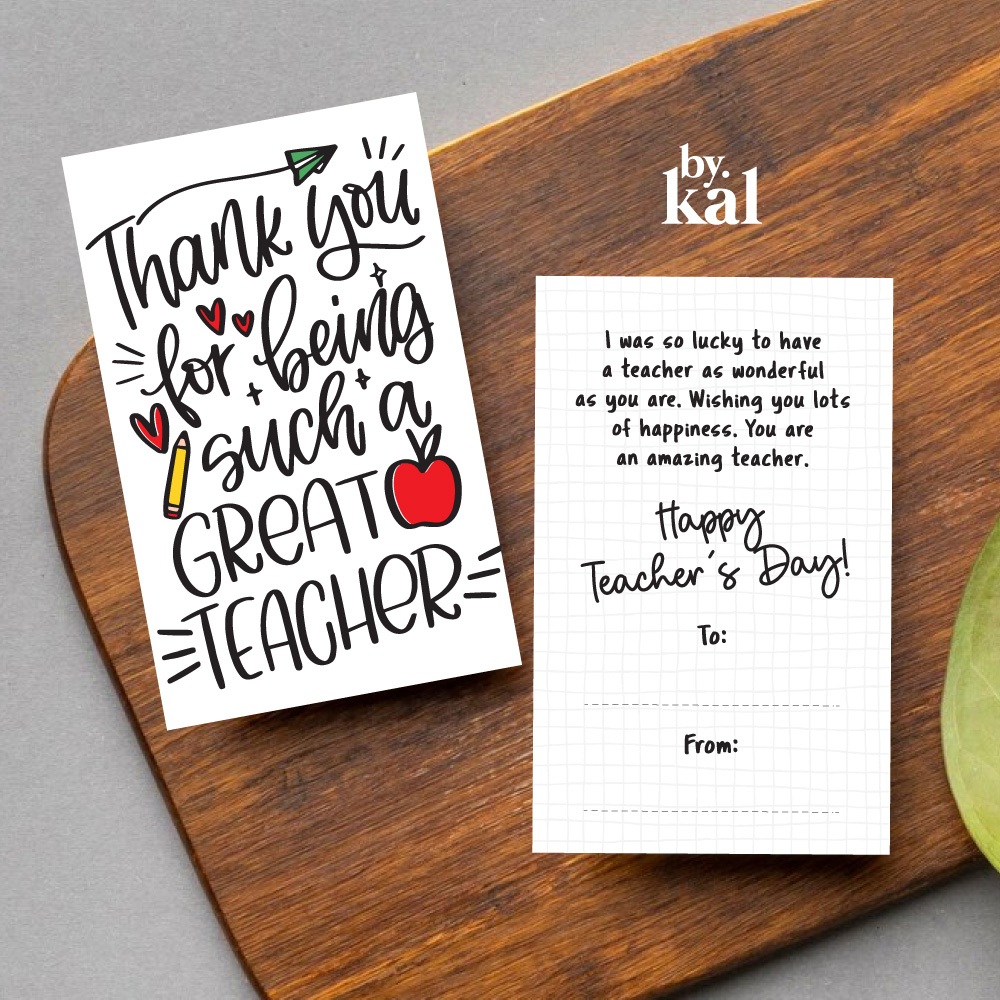 Thank you
for being
such a
GREAT
TEACHER
by.
kal
I was so lucky to have
a teacher as wonderful
as you are. Wishing you lots
of happiness. You are
an amazing teacher.
Happy
Teacher's Day!
To:
From: